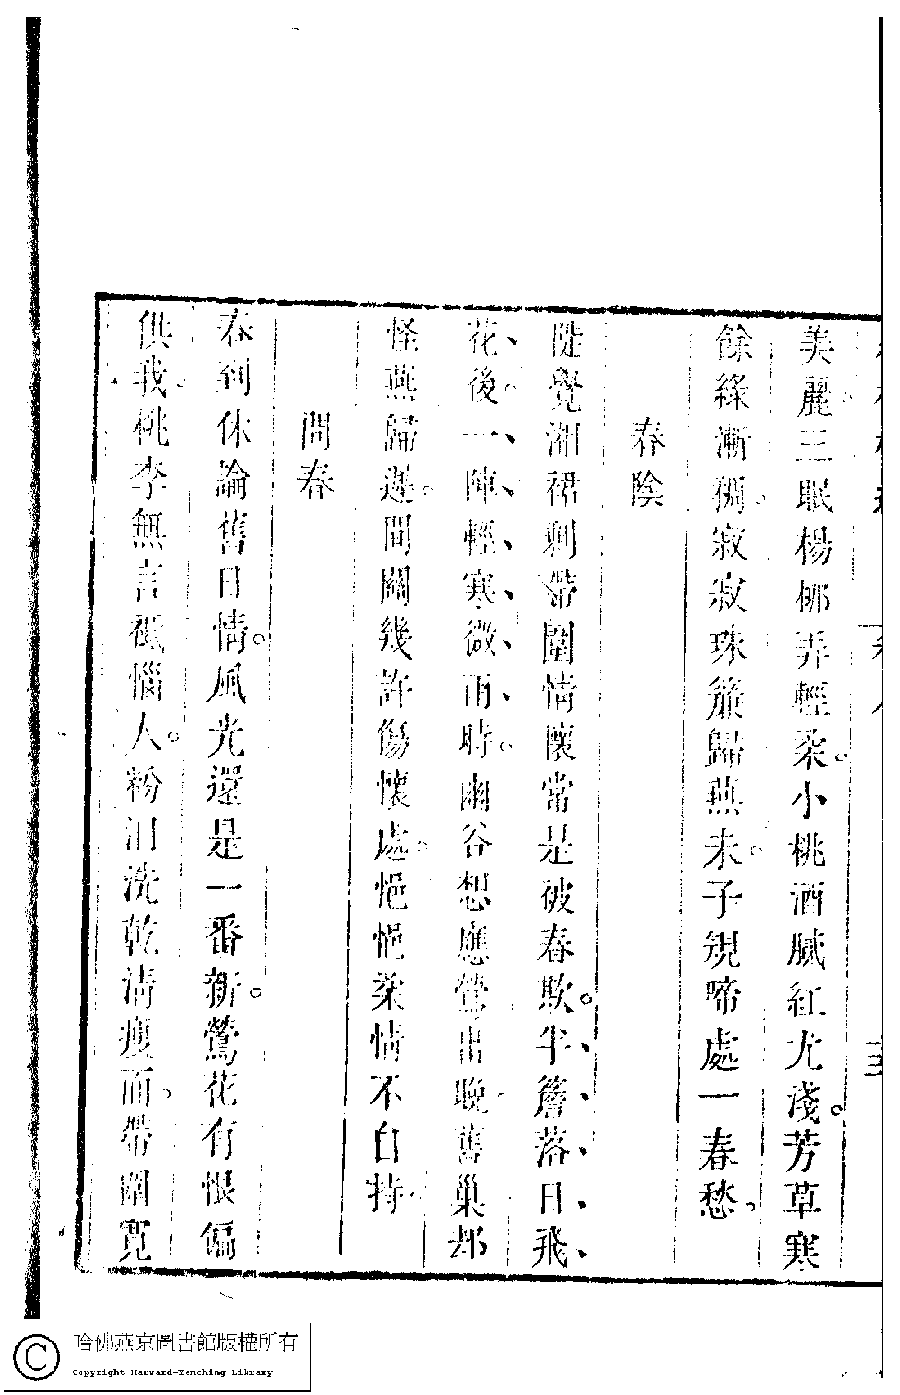 美麗。三眠楊柳弄輕柔。小桃酒膩紅尤淺。芳草寒
餘綠漸稠。寂寂珠簾歸燕未。子規啼處一春愁。
春陰
陡覺湘裙剩帶圍情懷常是被春欺。半簷落日飛
花後。一陣輕寒微雨時。幽谷想應鶯出晚。舊巢却
怪燕歸遲。間關幾許傷懷處。悒悒柔情不自持。
問春
春到休論舊日情。風光還是一番新。鶯花有恨偏
供我。桃李無言祗惱人。粉泪洗乾清瘦面。帶圍寬
哈佛燕京圖書館版權所有
Copyright Harvard-Yenching Library